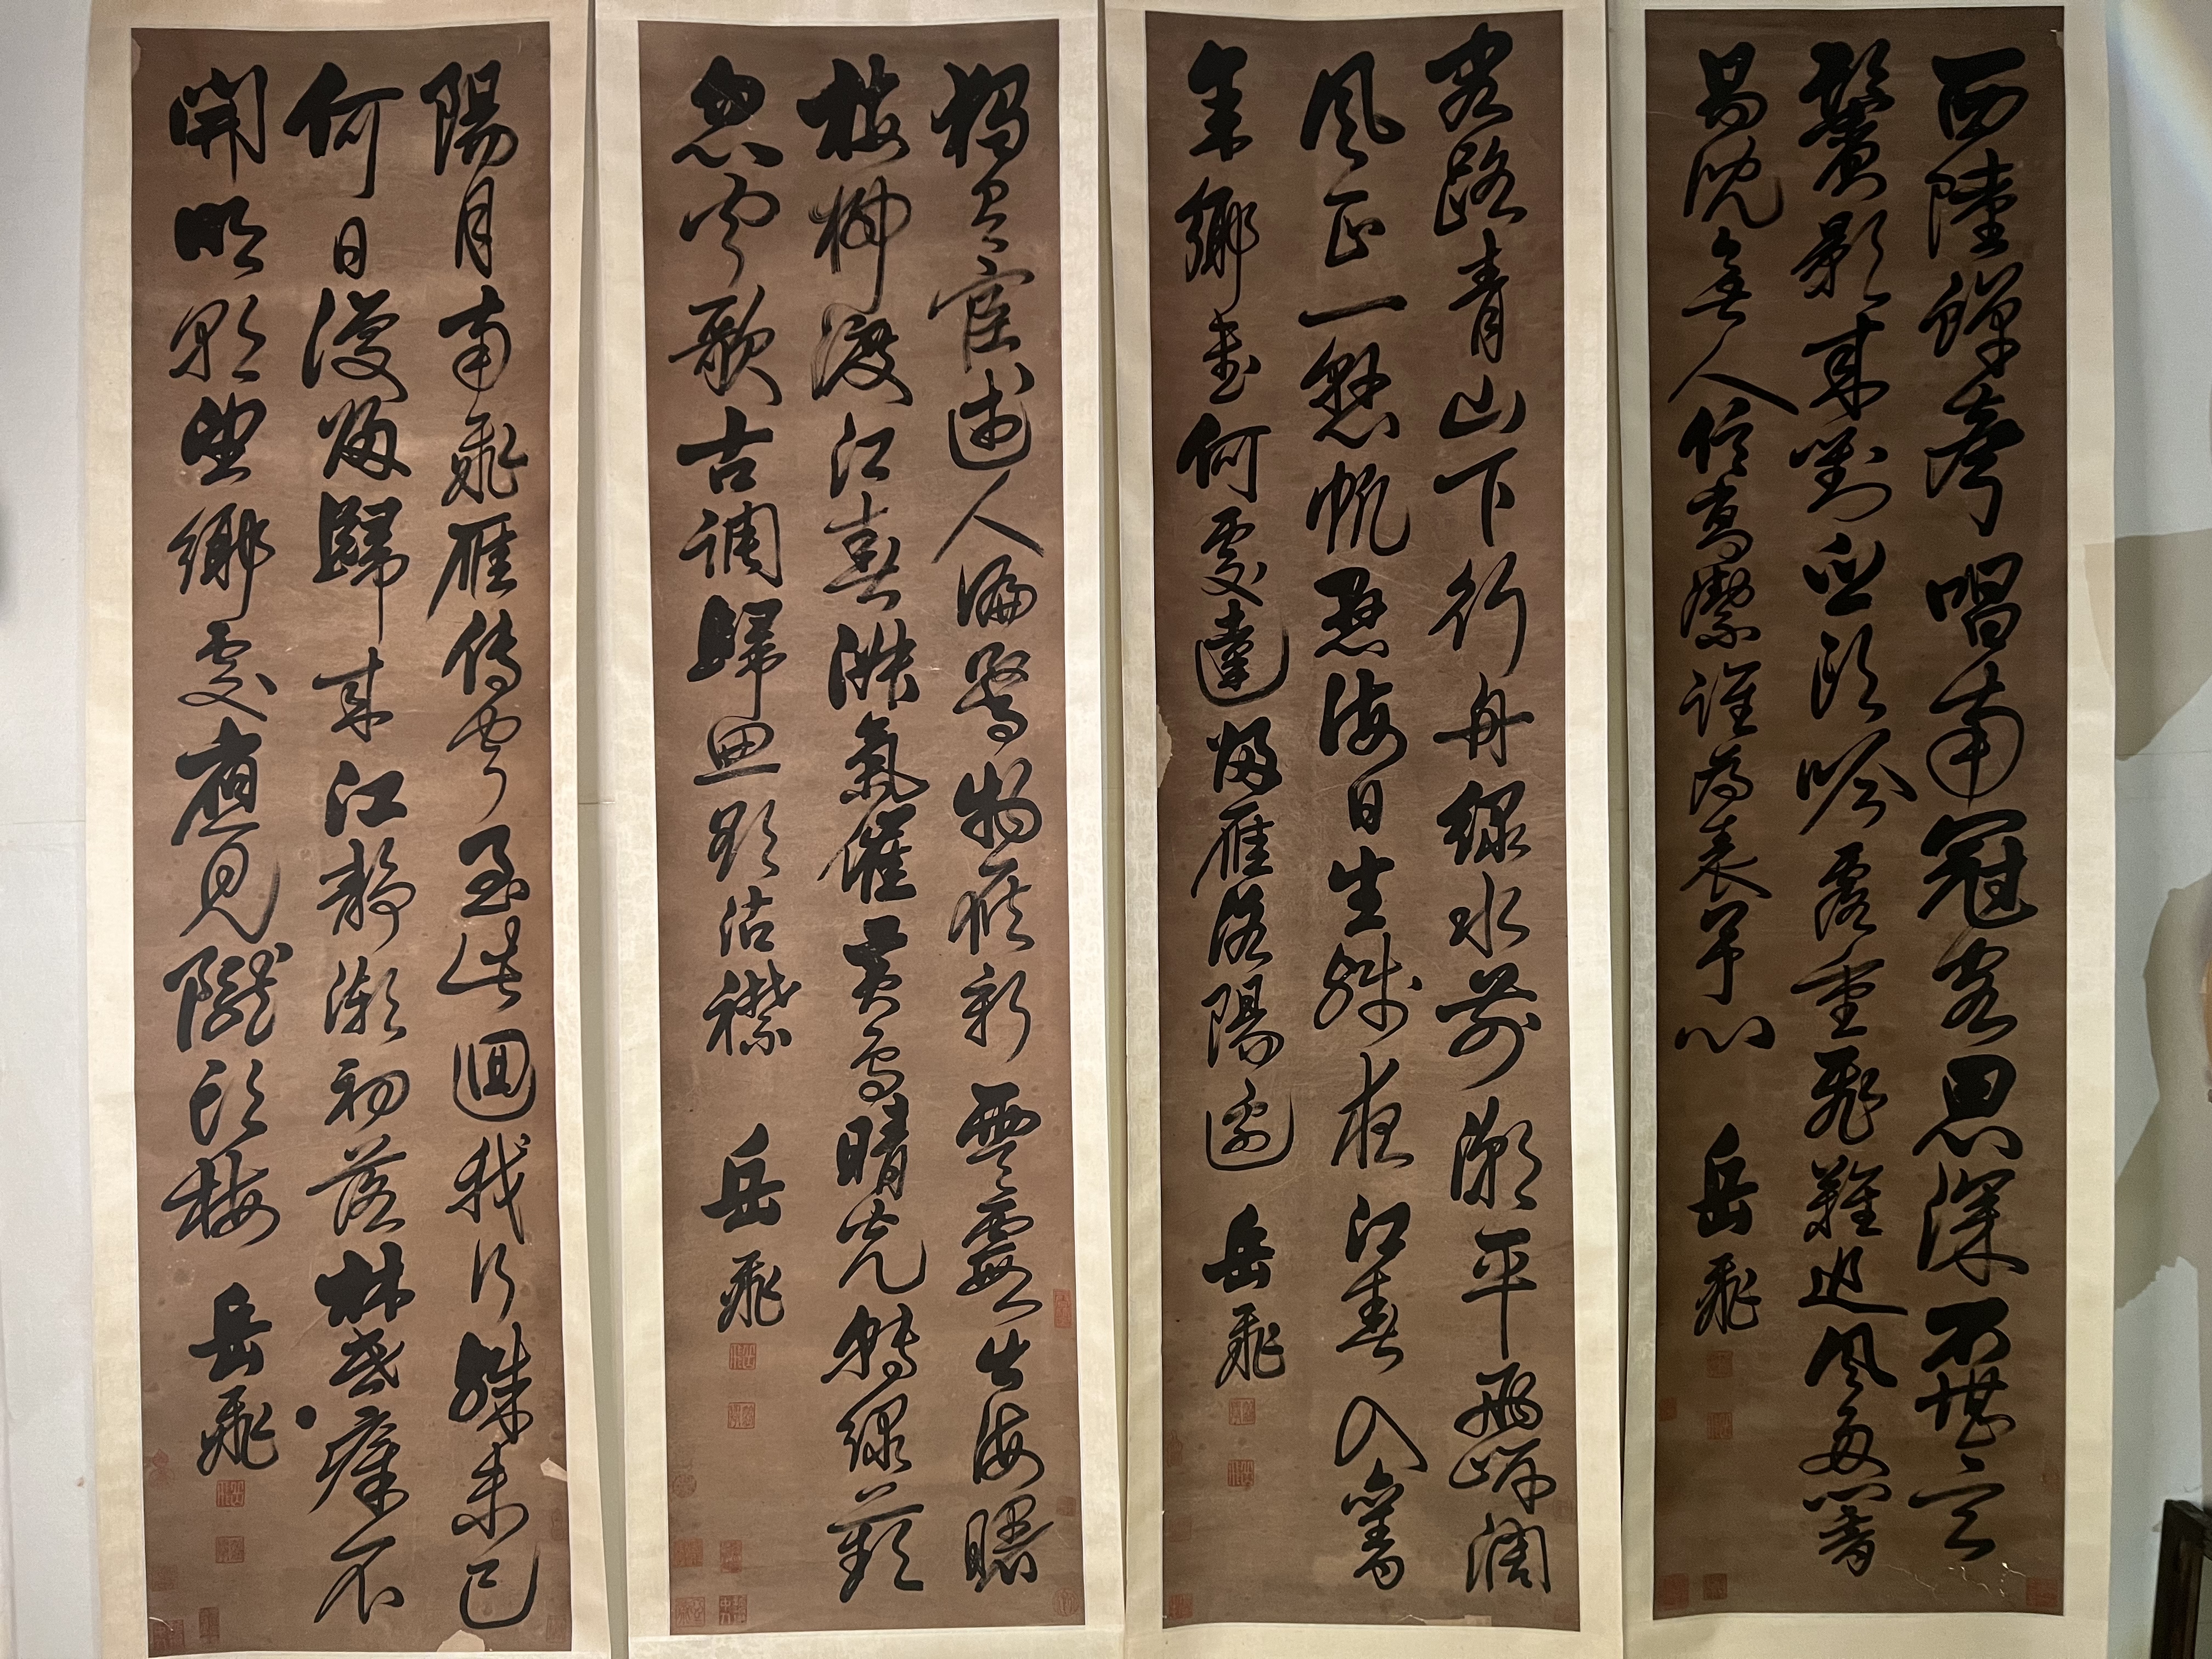 西陸蟬聲唱南冠客思深不堪玄
鬢影來對白頭吟露重飛難進風多響
易沈無人信高潔誰為表予心 岳飛
客路青山下行舟綠水前潮平兩岸闊
風正一懸帆懸海日生殘夜江春入舊
年鄉書何處達歸雁洛陽邊 岳飛
獨有宦遊人偏驚物候新雲霞出海曙
梅柳渡江春淑氣催黃鳥晴光轉綠蘋
忽聞歌古調歸思欲沾襟 岳飛
陽月南飛雁傳聞至此迴我行殊未已
何日復歸歸來江靜潮初落林昏瘴不
開明朝望鄉處應見隴頭梅 岳飛